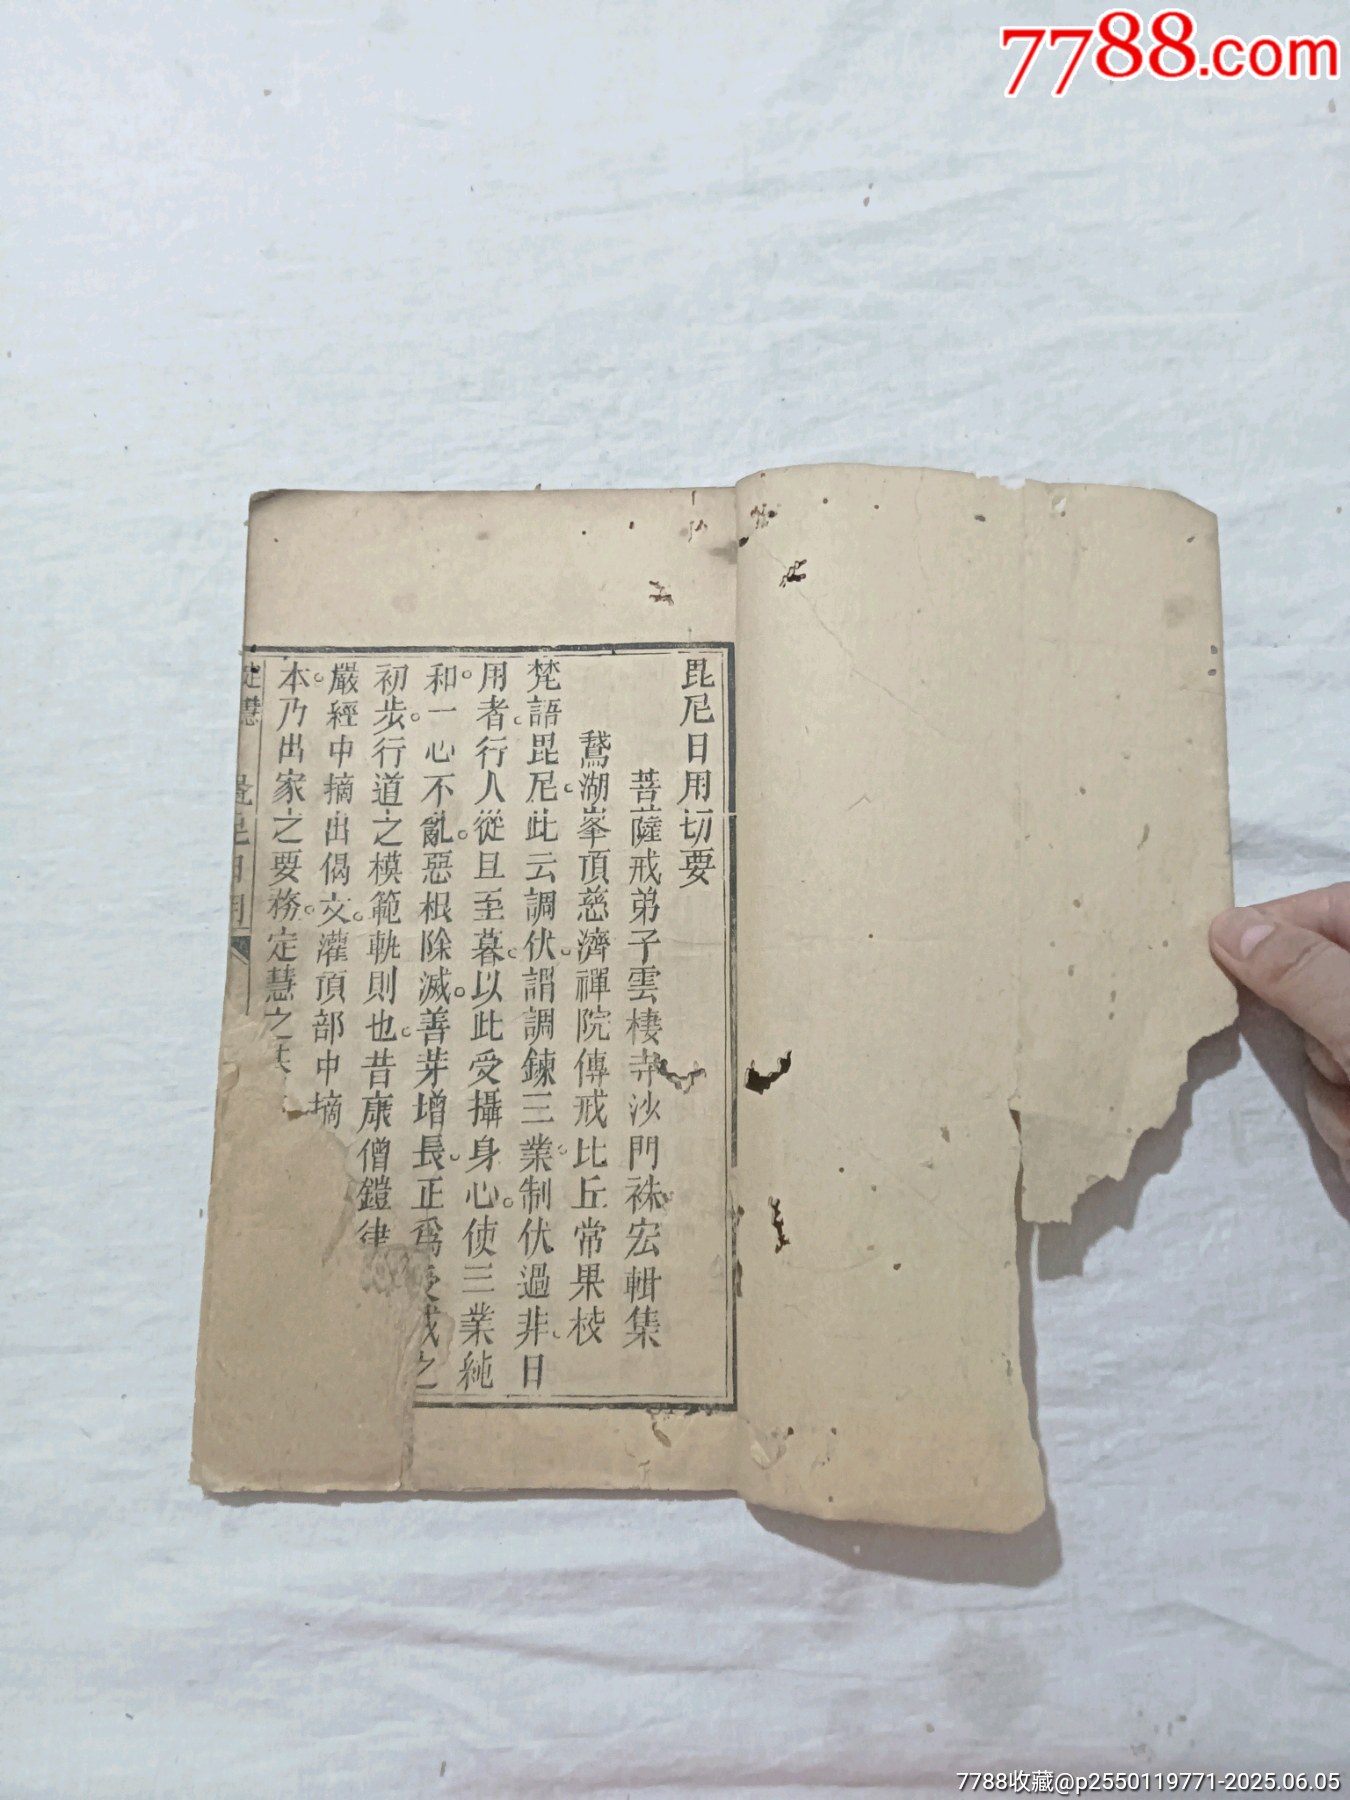 7788.com
毘尼日用切要
菩薩戒弟子雲棲寺沙門袾宏輯集
鵞湖峯頂慈濟禪院傳戒比丘常果校
梵語毘尼此云調伏謂調鍊三業制伏過非日
用者行人從旦至暮以此受攝身心使三業純
和一心不亂惡根除滅善芽增長正爲受戒之
初步行道之模範軌則也昔康僧鎧律
嚴經中摘出偈文灌頂部中摘
本乃出家之要務定慧之
定慧 毘尼日用
7788收藏@p2550119771-2025.06.05